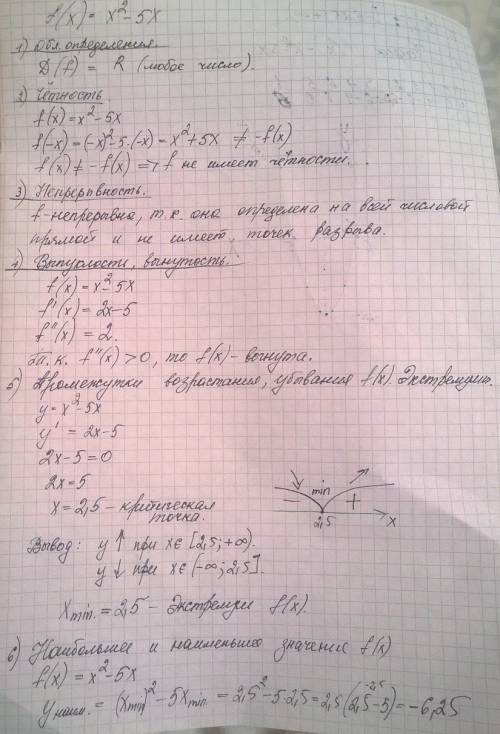 f(x) = x²-5x
1) Обл. определения.
D(f) = R (любое число).
2) Чётность
f(x)=x²-5x
f(-x)=(-x)²-5·(-x)=x²+5x ≠ -f(x)
f(x)≠-f(x) => f не имеет чётности.
3) Непрерывность.
f-непрерывна, т.к. она определена на всей числовой
прямой и не имеет точек разрыва.
4) Выпуклости, вогнутость.
f(x)=x²-5x
f'(x)=2x-5
f''(x)=2.
Т.к. f''(x)>0, то f(x)-вогнута.
5) Промежутки возрастания, убывания f(x). Экстремумы.
y=x²-5x
y' = 2x-5
2x-5=0
2x=5
x=2,5-критическая
точка.
min
- +
2,5 x
Вывод: y↑ при x∈[2,5;+∞).
y↓ при x∈(-∞;2,5].
xmin.=2,5- Экстремум f(x).
6) Наибольшее и наименьшее значения f(x)
f(x)=x²-5x
-2,5
yнаим.=(xmin)²-5xmin.=2,5²-5·2,5=2,5(2,5-5)=-6,25